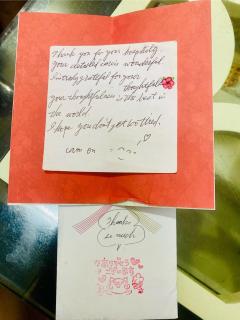 Thank you for your hospitality
your detailed care is wonderful.
I'm truly grateful for your
thoughtfull
your thoughtfulness is the best in
the world
I hope you don't get too tired.
Thanks
so much
ありがとう
ございます